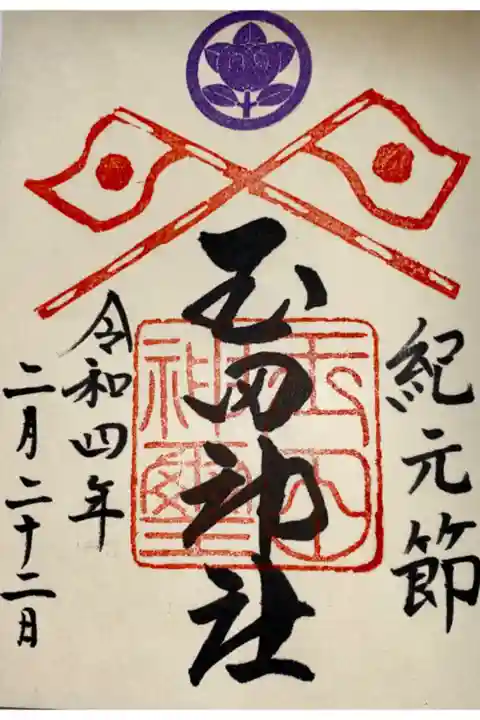 紀元節
玉田神社
令和四年
二月二十二日